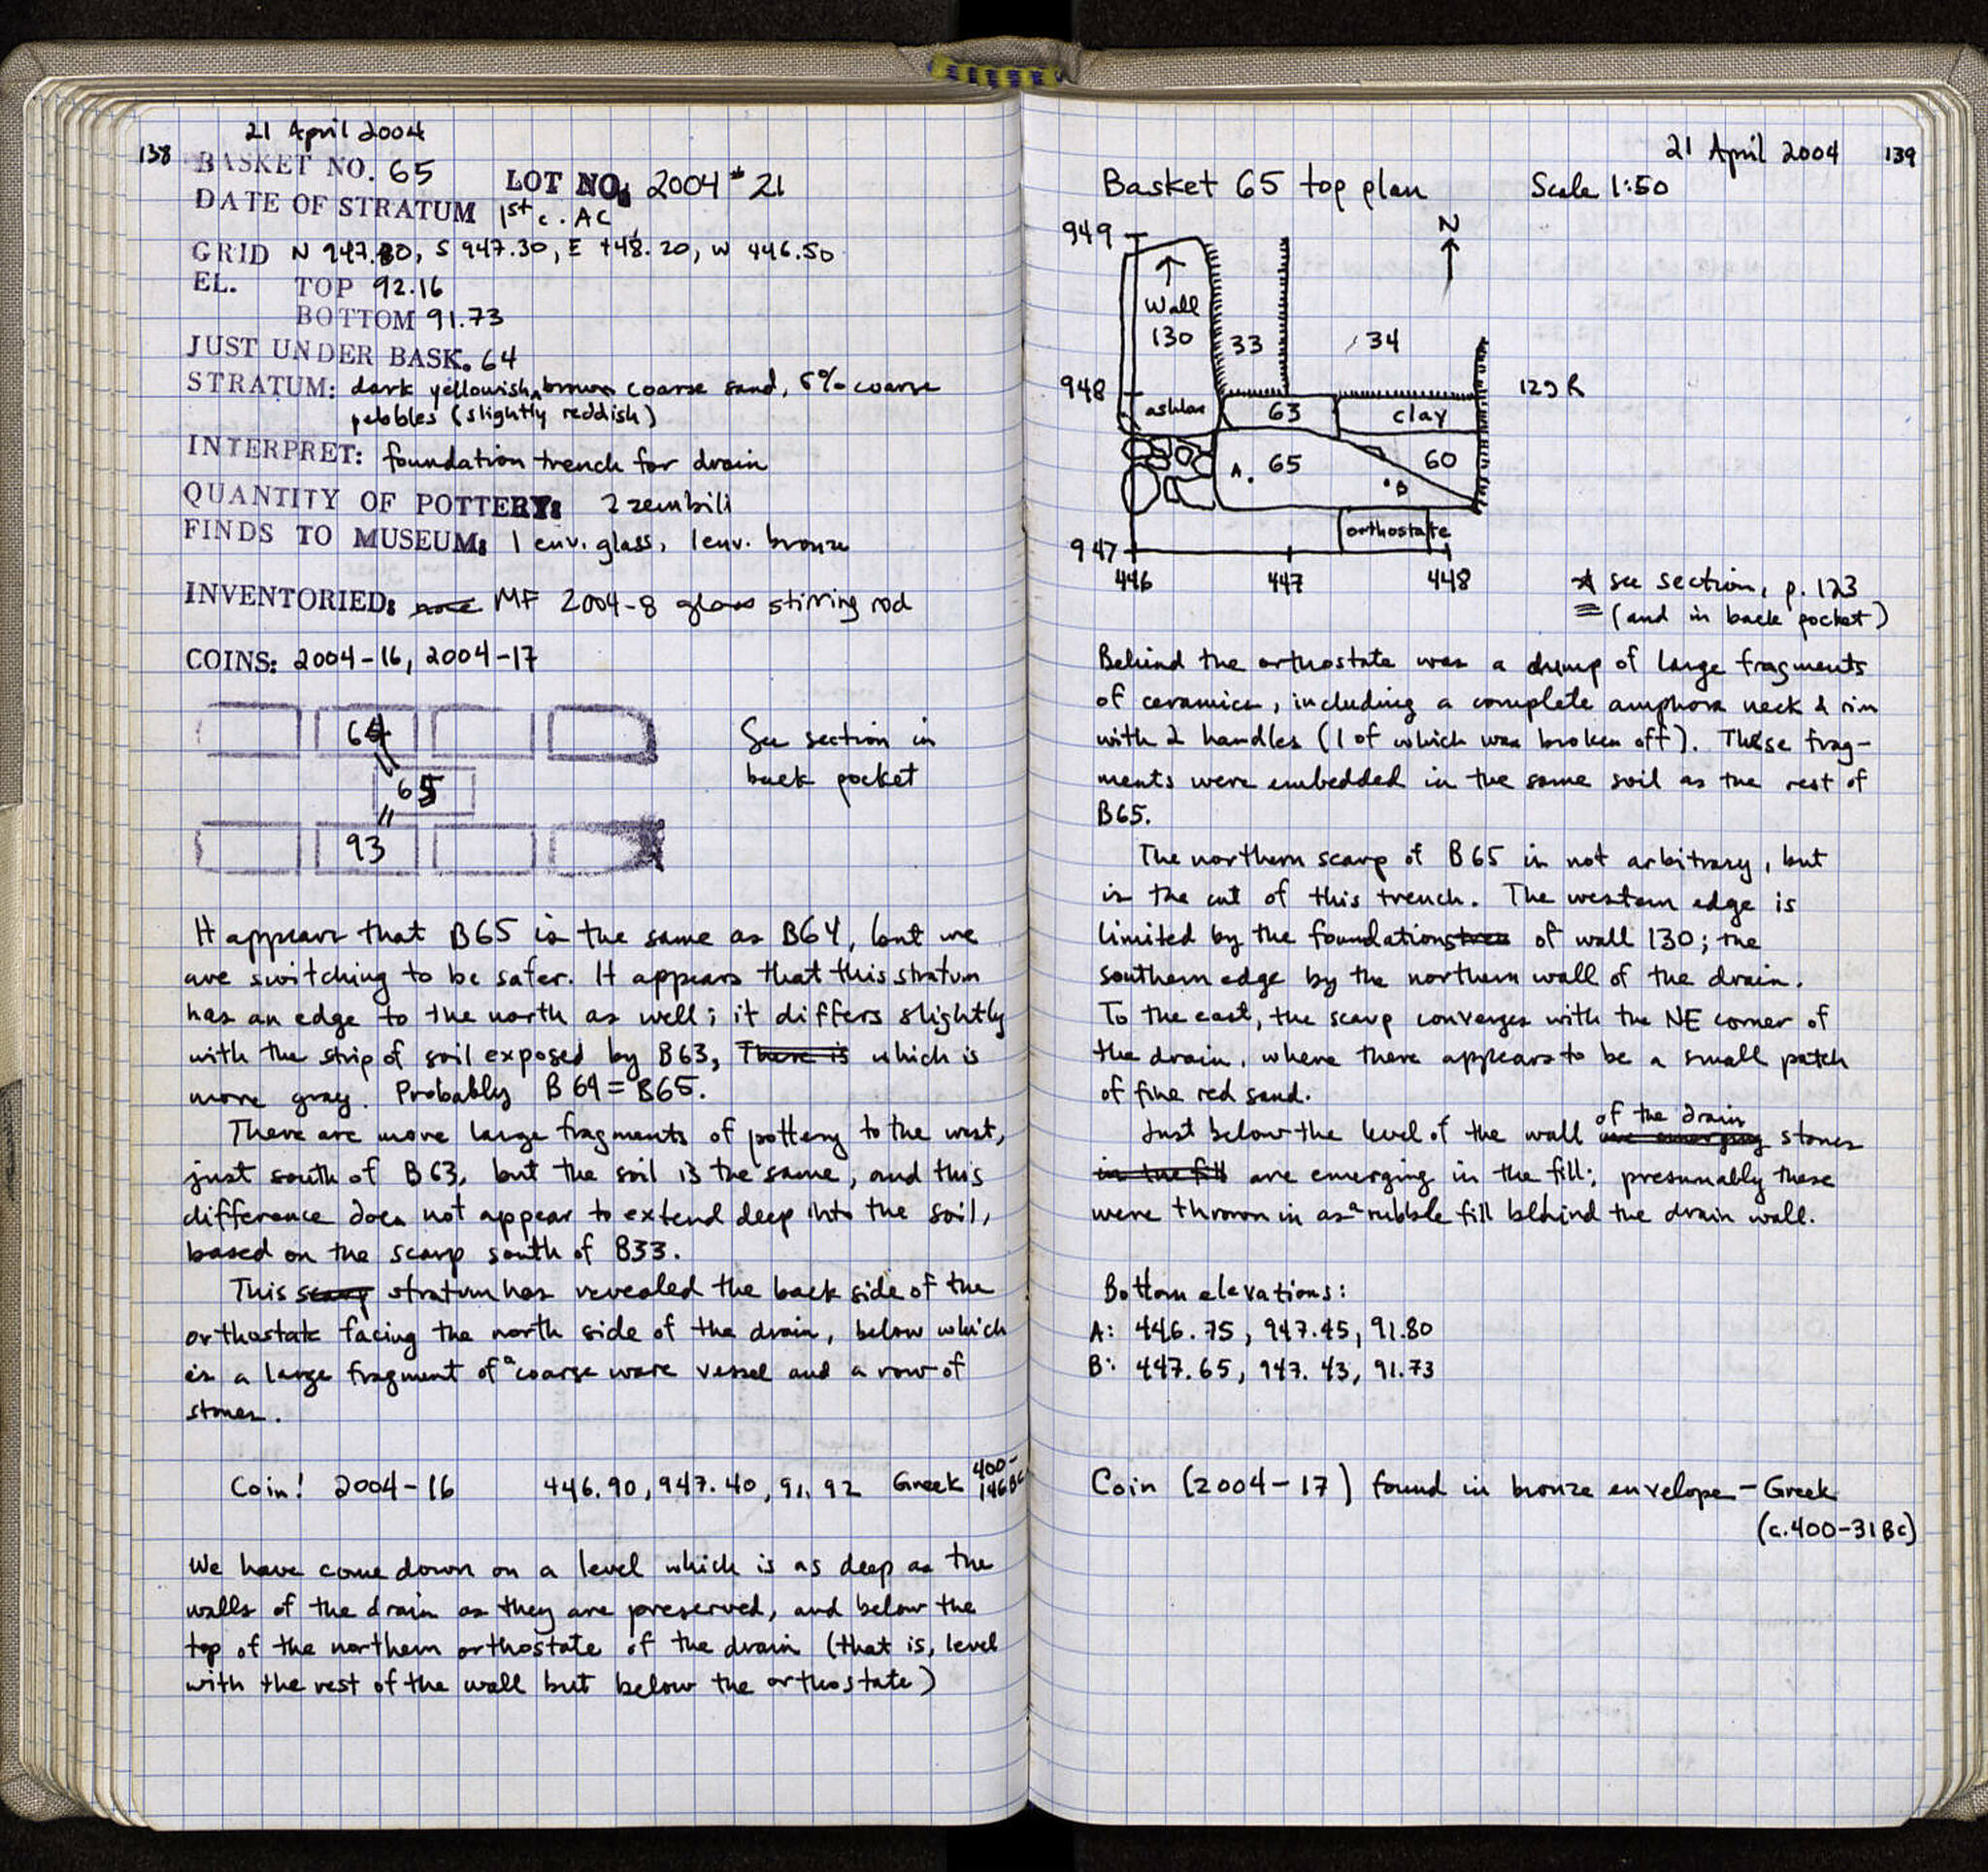 21 April 2004
138
BASKET NO. 65
LOT NO. 2004 # 21
DATE OF STRATUM 1st c. AC
GRID N 947.80, S 947.30, E 448.20, W 446.50
EL. TOP 92.16
BOTTOM 91.73
JUST UNDER BASK. 64
STRATUM: dark yellowish brown coarse sand, 5% coarse
pebbles (slightly reddish)
INTERPRET: foundation trench for drain
QUANTITY OF POTTERY: 2 zembili
FINDS TO MUSEUM: 1 env. glass, 1 env. bronze
INVENTORIED: none MF 2004-8 glass stirring rod
COINS: 2004-16, 2004-17
64
65
93
See section in
back pocket
It appears that B65 is the same as B64, but we
are switching to be safer. It appears that this stratum
has an edge to the north as well; it differs slightly
with the strip of soil exposed by B63, There is which is
more gray. Probably B64 = B65.
There are more large fragments of pottery to the west,
just south of B63, but the soil is the same, and this
difference does not appear to extend deep into the soil,
based on the scarp south of B33.
This scarp stratum has revealed the back side of the
orthostate facing the north side of the drain, below which
is a large fragment of a coarse ware vessel and a row of
stones.
Coin! 2004-16 446.90, 947.40, 91.92 Greek 400-
146 BC
We have come down on a level which is as deep as the
walls of the drain as they are preserved, and below the
top of the northern orthostate of the drain (that is, level
with the rest of the wall but below the orthostate)
21 April 2004 139
Basket 65 top plan Scale 1:50
949
N
Wall
130
33
34
948
129 R
ashlar
63
clay
A.
65
60
B
orthostate
947
446
447
448
* see section, p. 123
(and in back pocket)
Behind the orthostate was a dump of large fragments
of ceramics, including a complete amphora neck & rim
with 2 handles (1 of which was broken off). These frag-
ments were embedded in the same soil as the rest of
B65.
The northern scarp of B65 is not arbitrary, but
is the cut of this trench. The western edge is
limited by the foundations of wall 130; the
southern edge by the northern wall of the drain.
To the east, the scarp converges with the NE corner of
the drain, where there appears to be a small patch
of fine red sand.
Just below the level of the wall of the drain are emerging stones
in the fill are emerging in the fill; presumably these
were thrown in as a rubble fill behind the drain wall.
Bottom elevations:
A: 446.75, 947.45, 91.80
B: 447.65, 947.43, 91.73
Coin (2004-17) found in bronze envelope - Greek
(c.400-31 BC)